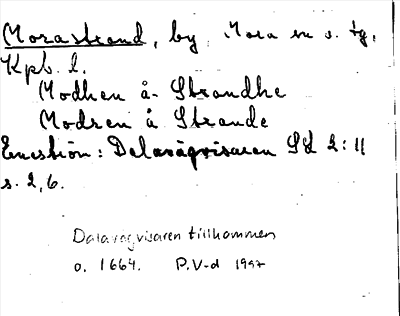 Morastrand, by, Mora sn o. tg,
Kpb. l.
Modhen å Strandhe
Modren å Strande
Eneströn: Dalavägvisaren SL 2:11
s. 2, 6.
Dalavägvisaren tillkommen
o. 1664. P.V-d 1997